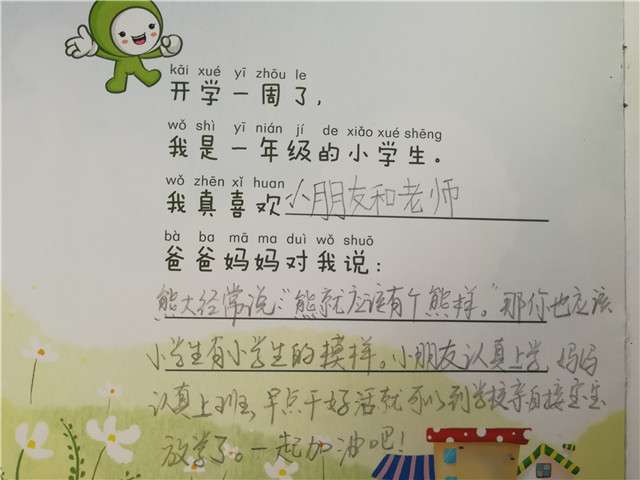 kāi xué yī zhōu le
开学一周了，
wǒ shì yī nián jí de xiǎo xué shēng
我是一年级的小学生。
wǒ zhēn xǐ huan
我真喜欢小朋友和老师
bà ba mā ma duì wǒ shuō
爸爸妈妈对我说：
熊大经常说：“熊就应该有个熊样。”那你也应该
小学生有小学生的模样。小朋友认真上学，妈妈
认真上班，早点干好活就可以到学校亲自接宝宝
放学了。一起加油吧！